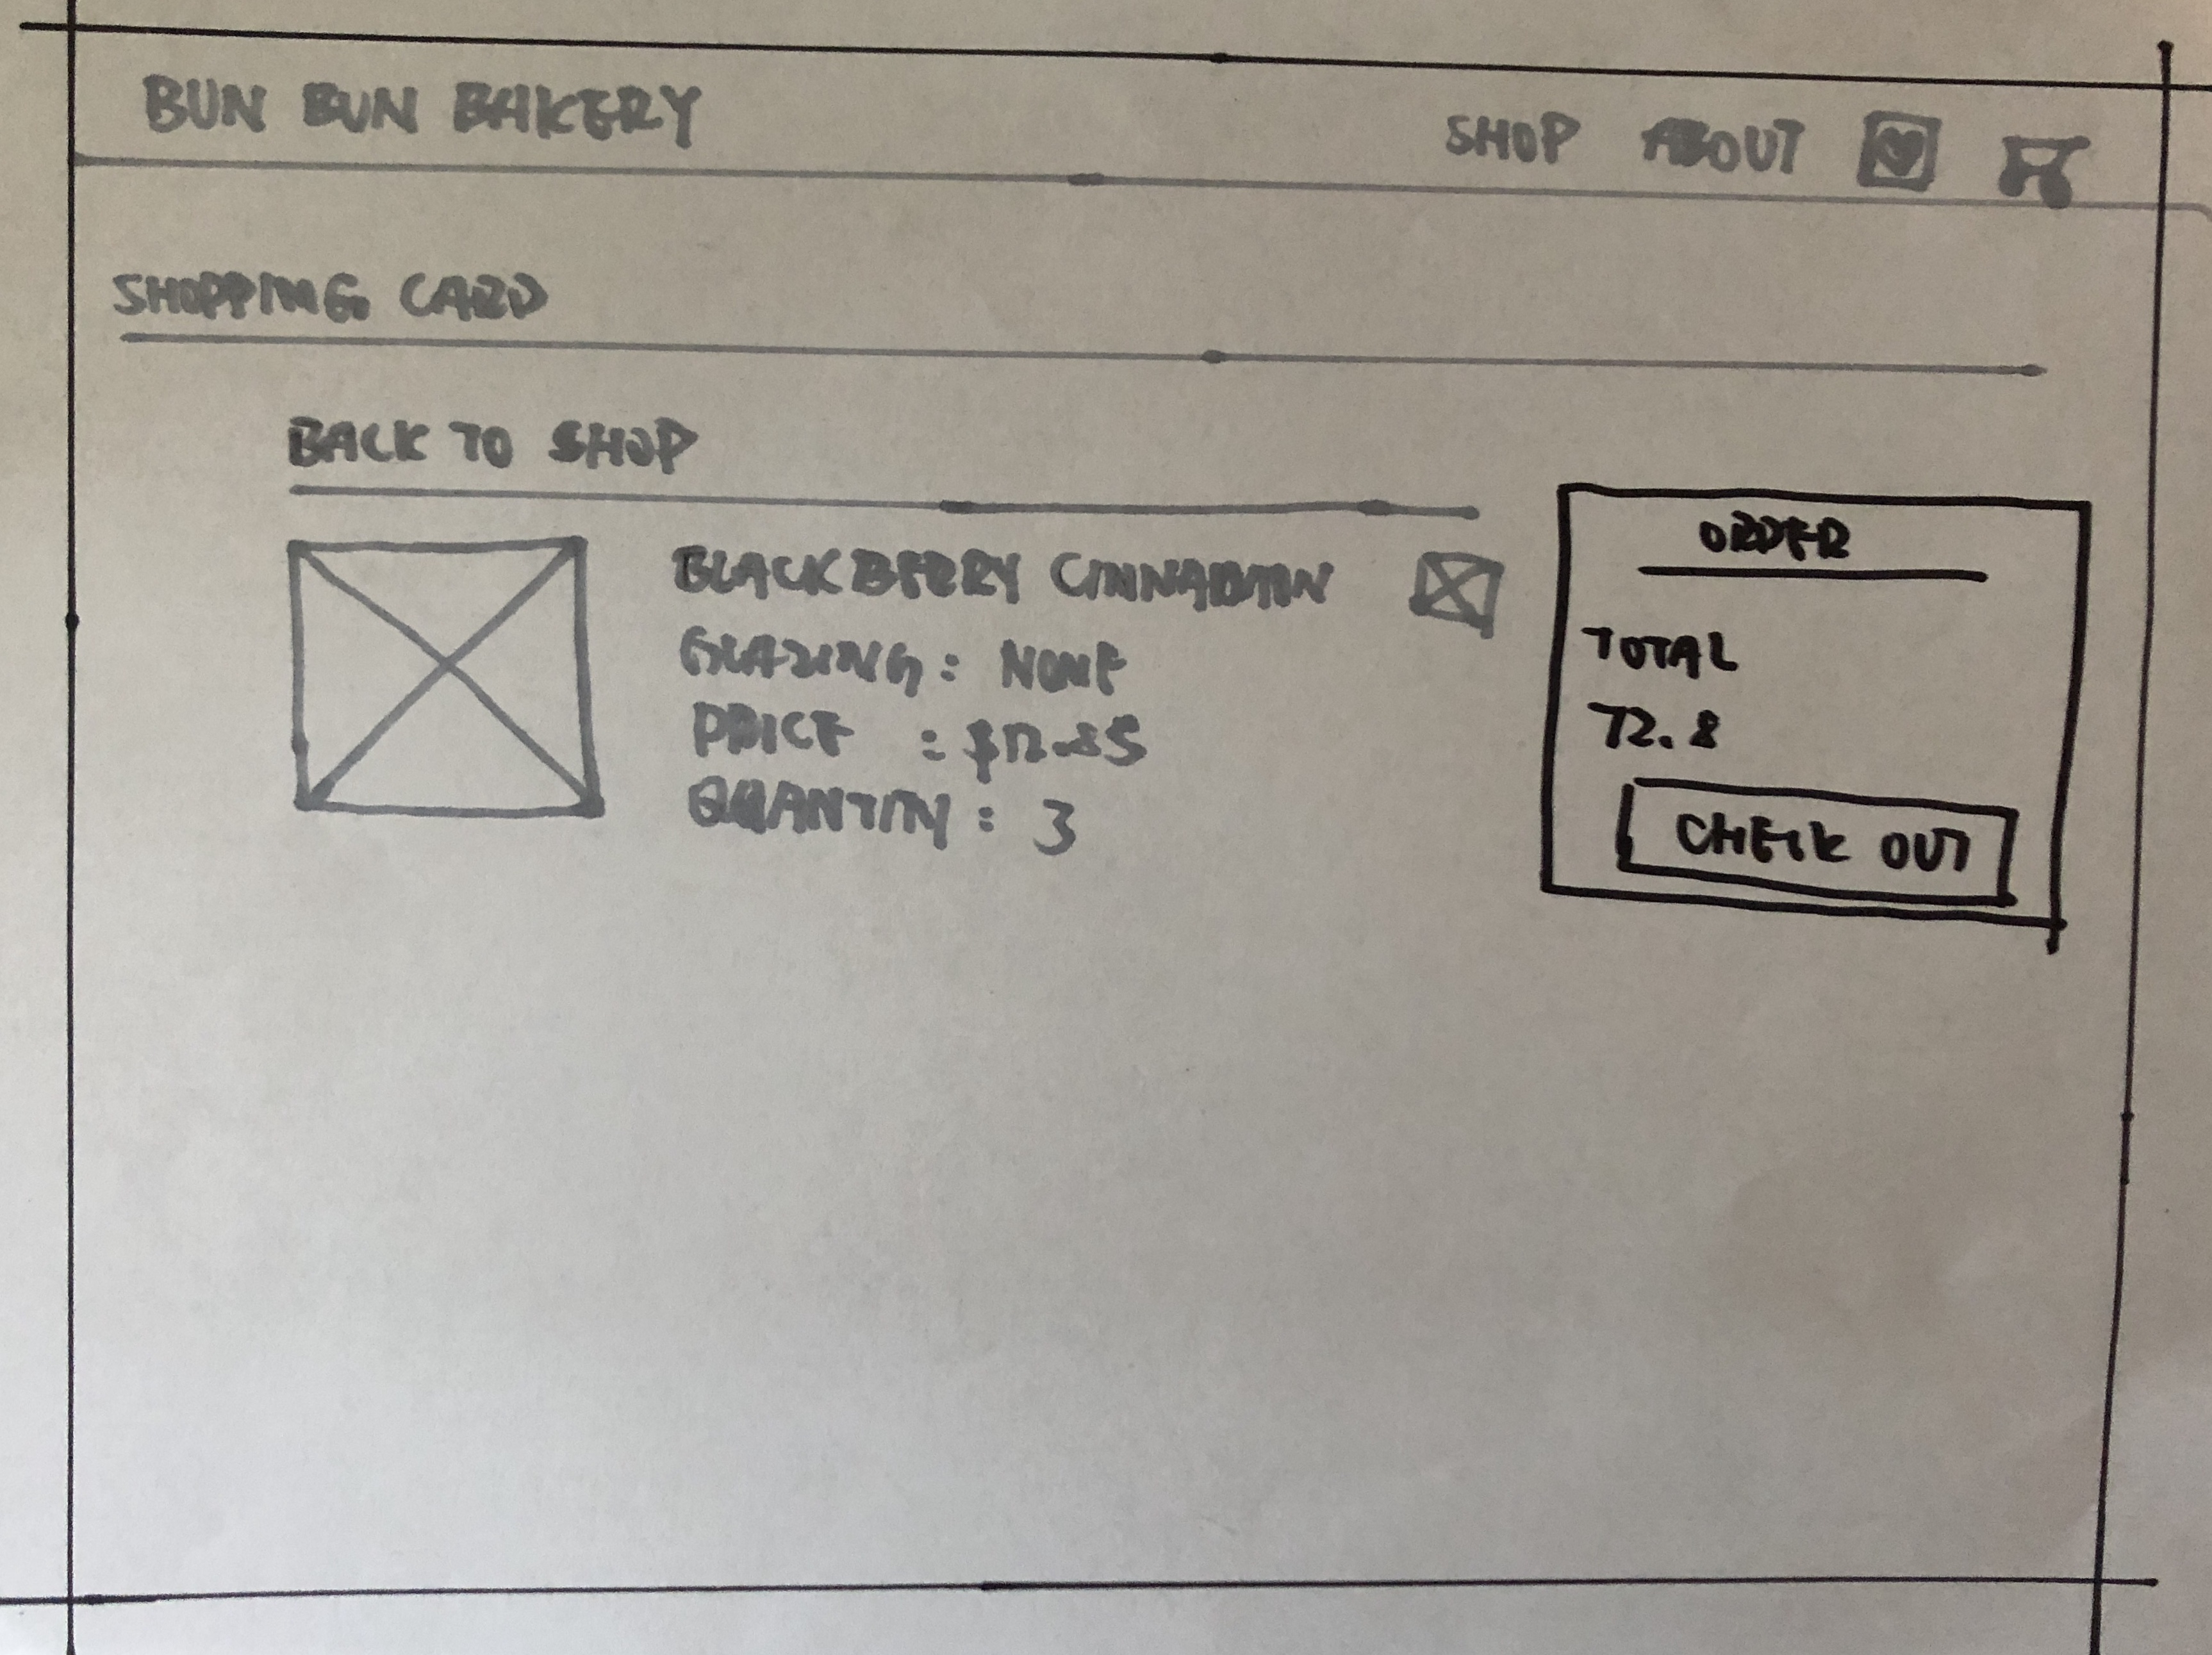 BUN BUN BAKERY
SHOP ABOUT
SHOPPING CARD
BACK TO SHOP
BLACKBERRY
GLAZING: NONE
PRICE : $12.85
QUANTITY: 3
ORDER
TOTAL
72.8
CHECK OUT